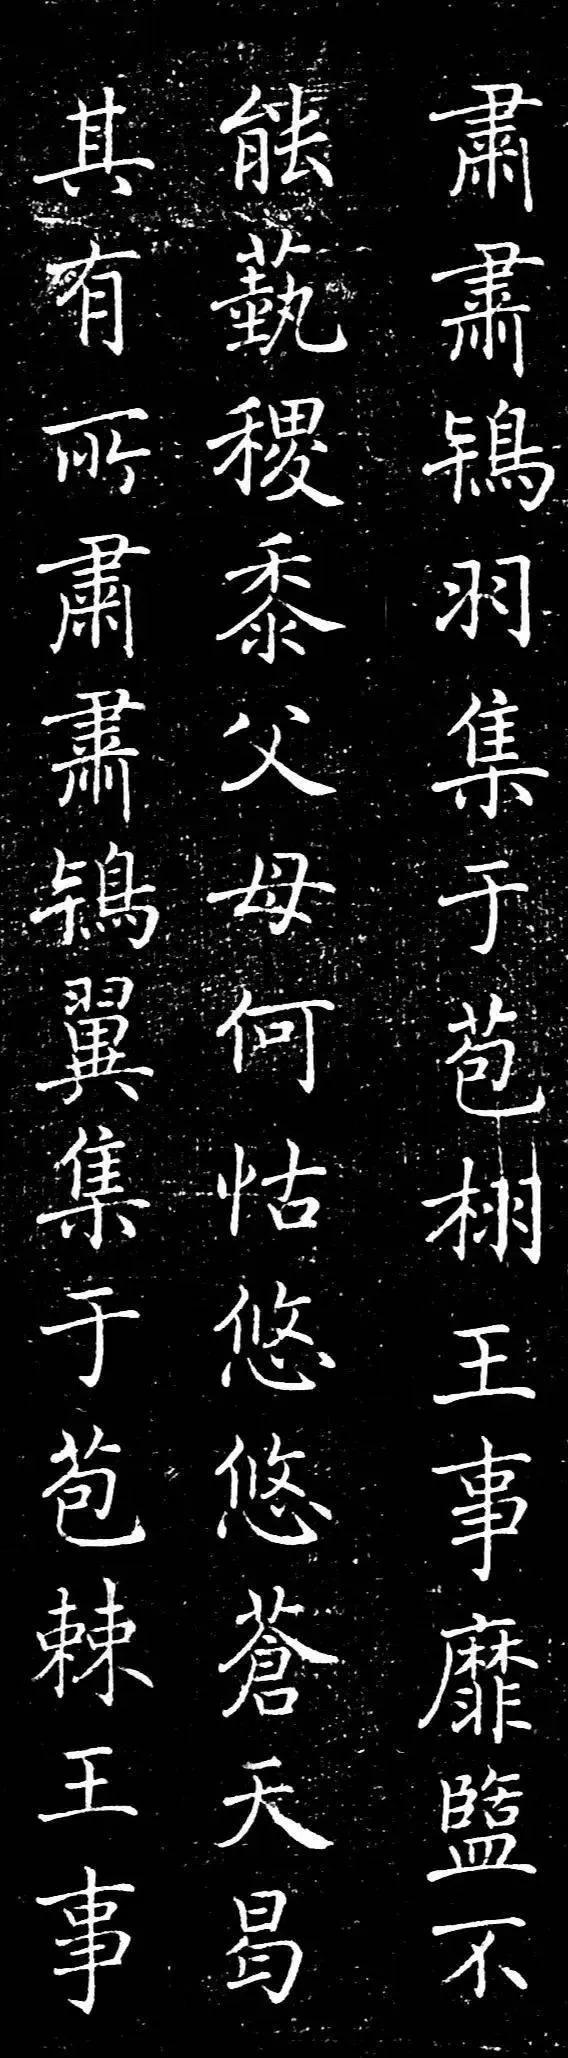 肅肅鴇羽集于苞栩王事靡盬不
能蓺稷黍父母何怙悠悠蒼天曷
其有所肅肅鴇翼集于苞棘王事